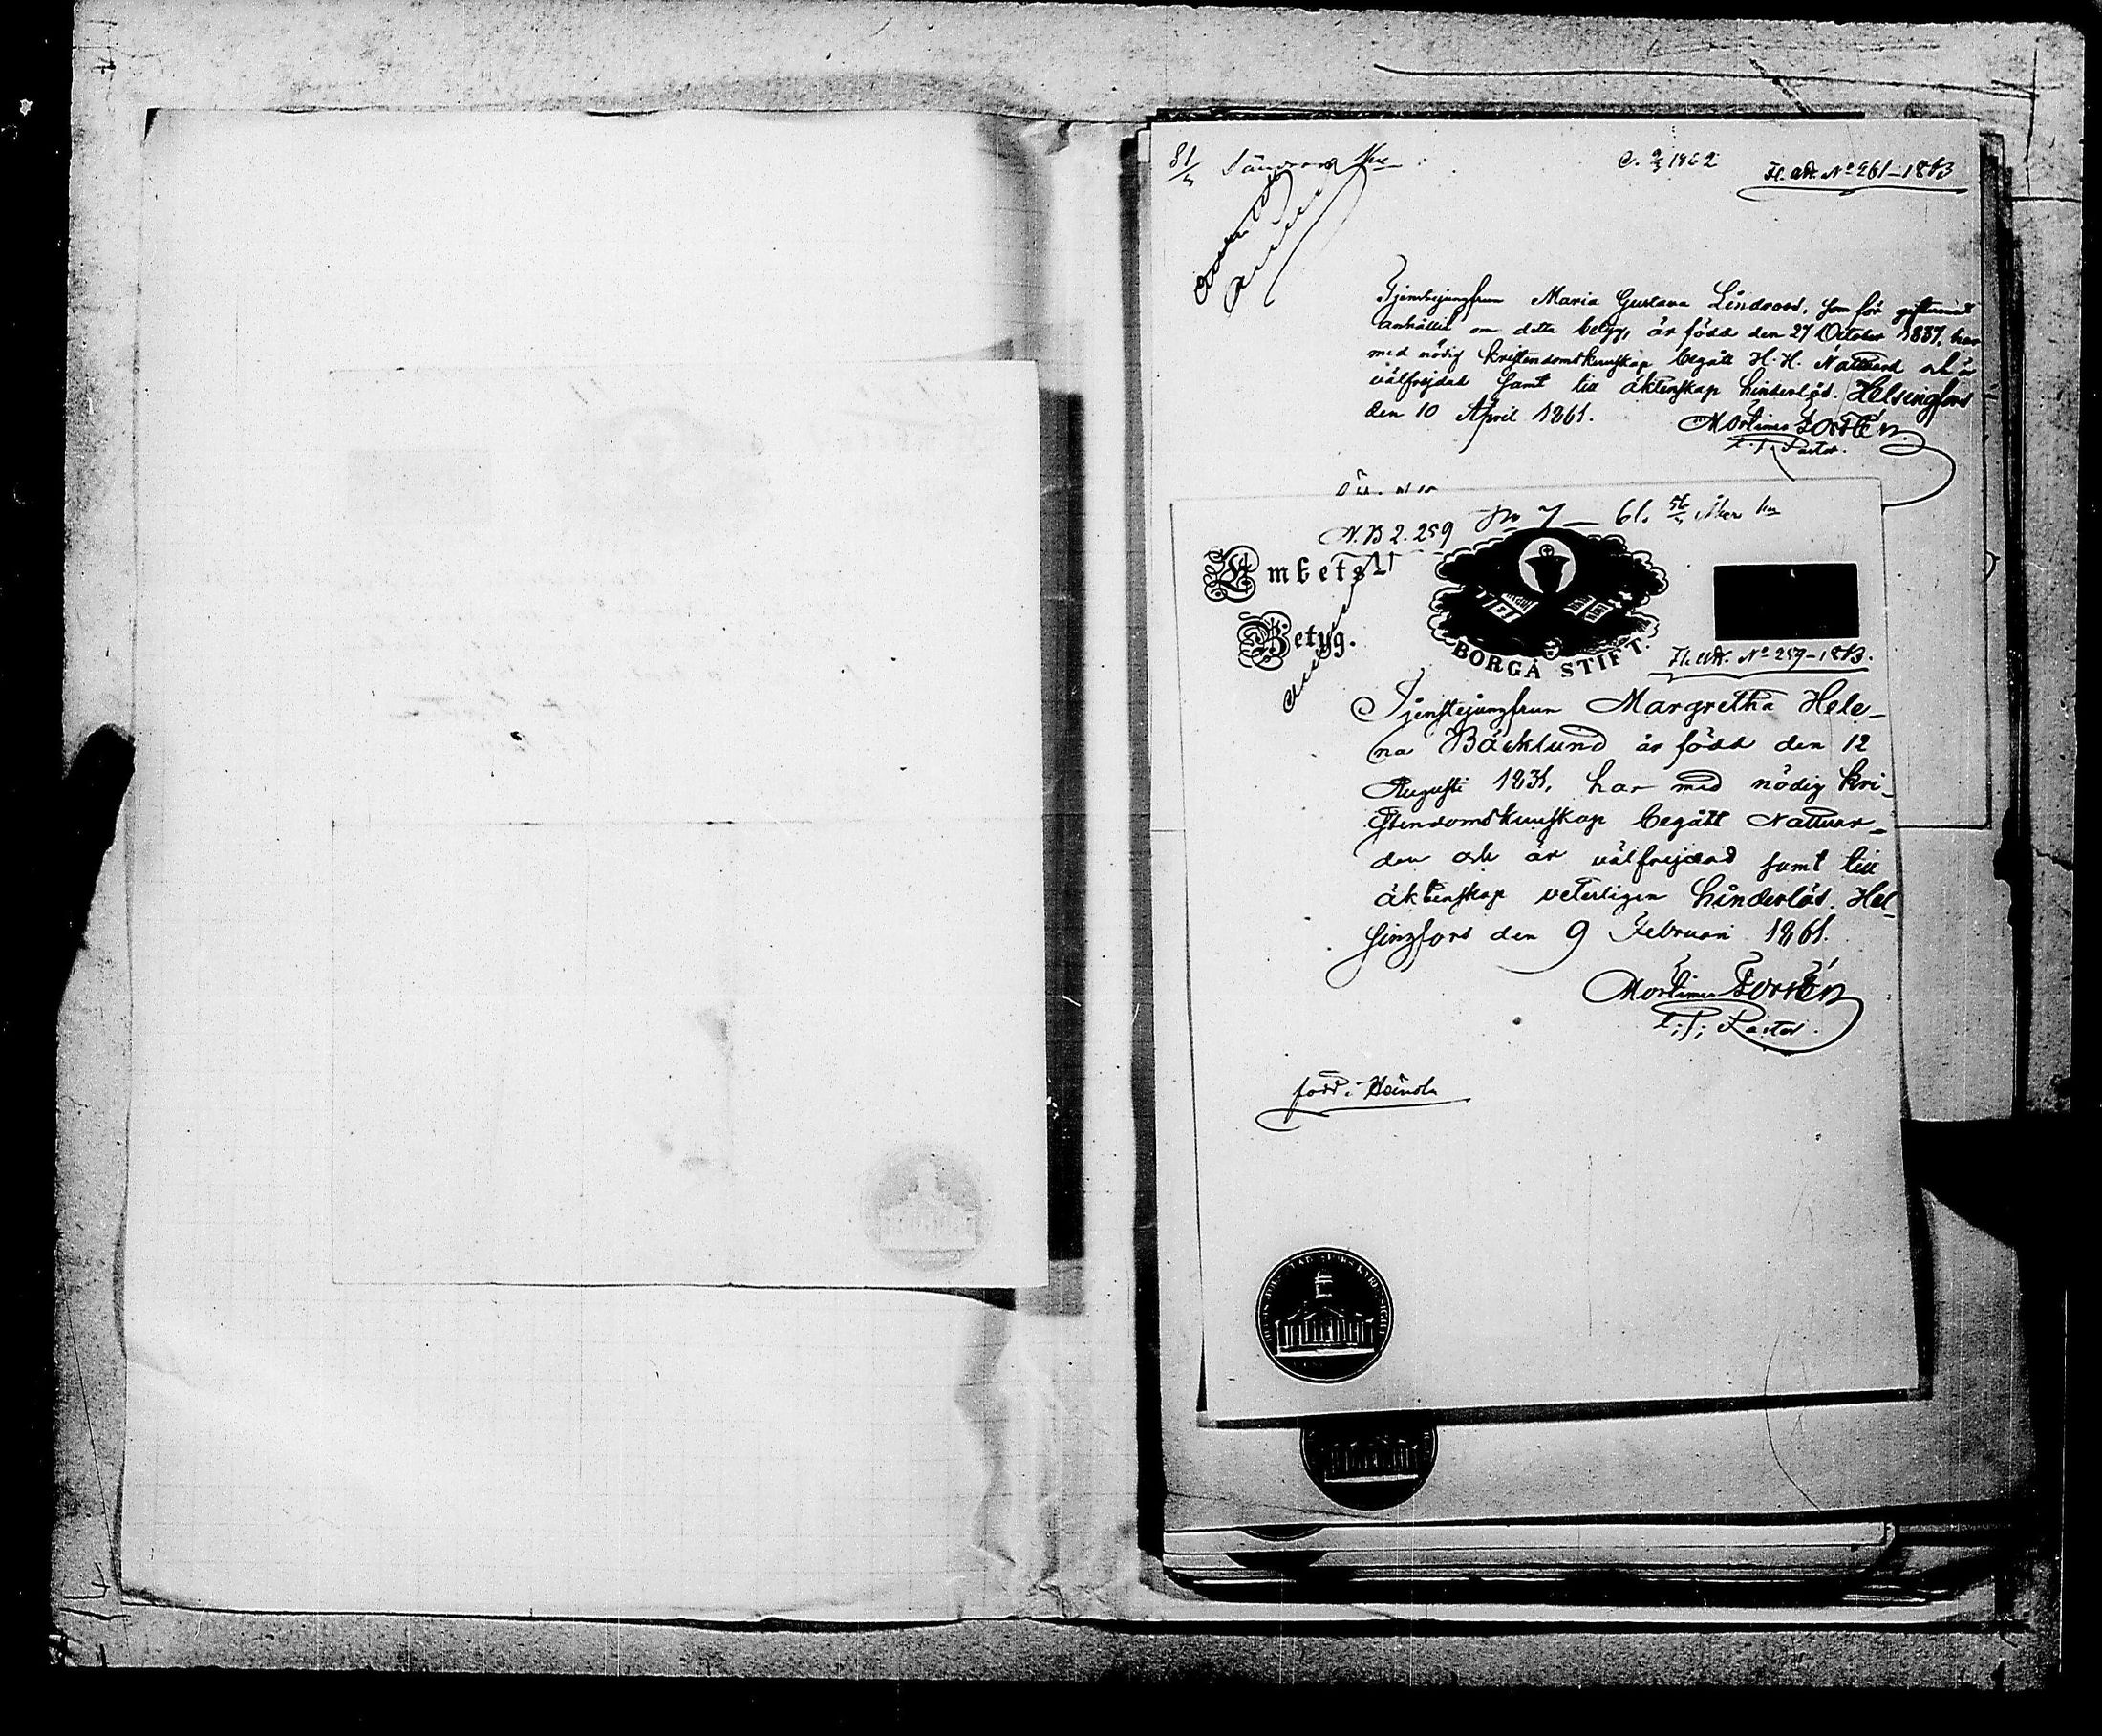 81/5
C. 2/3 1862
Fl. Att. No 261-1873
Tjenstejungfrun Maria Gustava Lindroos, som för giftermål
anhållit om detta betyg, är född den 27 October 1837, har
med nödig kristendomskunskap begått H. H. Nattvard och är
välfrejdad samt till äktenskap hinderlös. Helsingfors
den 10 April 1861.
Mortimer
t. f. Pastor.
N.B 2. 259 No 7 61. 56/5
Embets-
Betyg.
BORGÅ STIFT.
Fl. Att. No 259-1873.
Tjenstejungfrun Margretha Hele-
na Bäcklund är född den 12
Augusti 1831, har med nödig kri-
stendomskunskap begått Nattvar-
den och är välfrejdad samt till
äktenskap veterligen hinderlös. Hel-
singfors den 9 Februari 1861.
Mortimer
t. f. Pastor.
född i Heinola